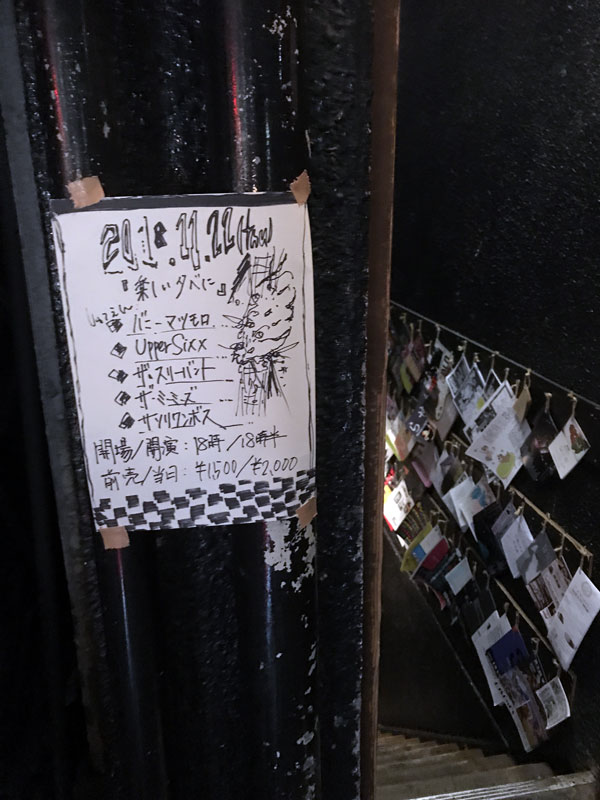 2018.11.22(Thu)
『楽しい夕べに』
バニーマツモロ
UpperSixx
ザ・スリーバント
ザ・ミミズ
サンリワンボス
開場/開演:18時/18時半
前売/当日:¥1,500/¥2,000